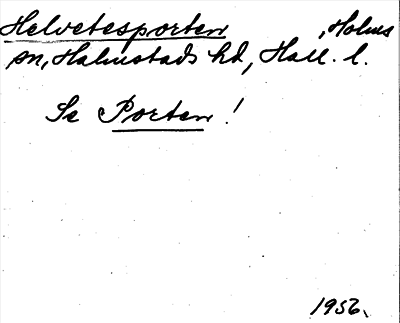 Helvetesporten , Holms
sn, Halmstads hd, Hall. l.
Se Porten !
1956.